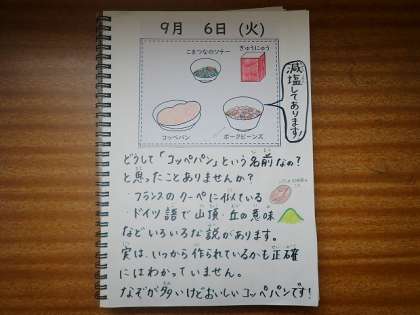 9月 6日(火)
こまつなのソテー
ぎゅうにゅう
コッペパン
ポークビーンズ
減塩してあります!
どうして「コッペパン」という名前なの?
と思ったことありませんか?
・フランスのクーペに似ている
・ドイツ語で山頂・丘の意味
などいろいろな説があります。
実は、いつから作られているかも正確
にはわかっていません。
なぞが多いけどおいしいコッペパンです!